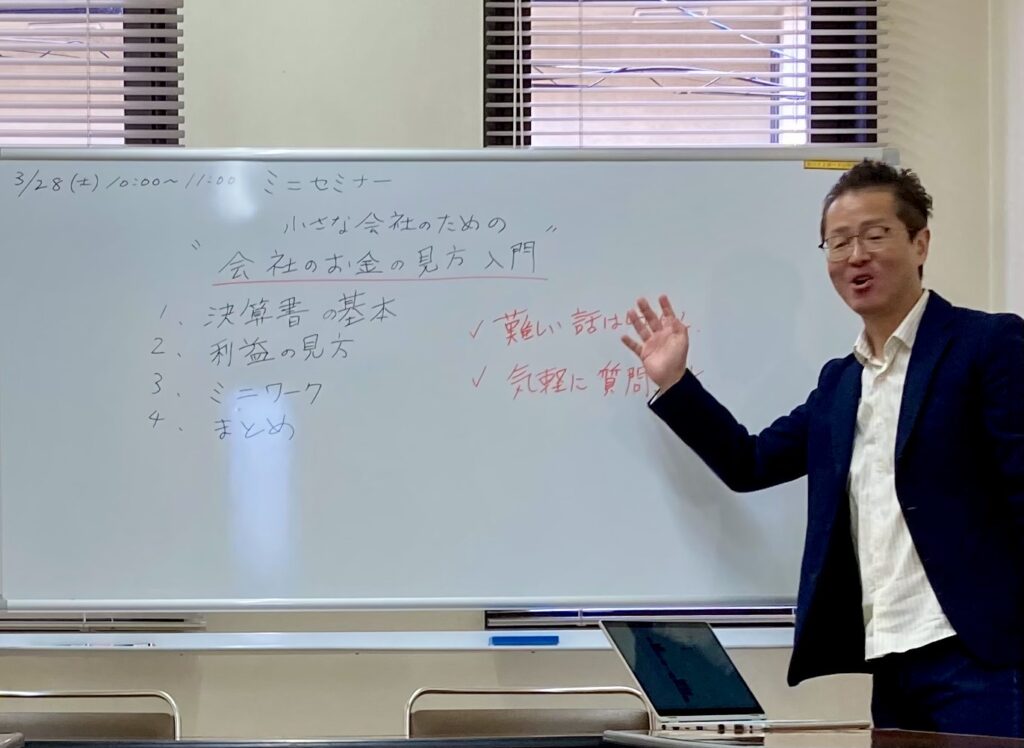 3/28(土) 10:00〜11:00 ミニセミナー
小さな会社のための
"会社のお金の見方入門"
1. 決算書の基本
2. 利益の見方
3. ミニワーク
4. まとめ
✓ 難しい話は
✓ 気軽に質問